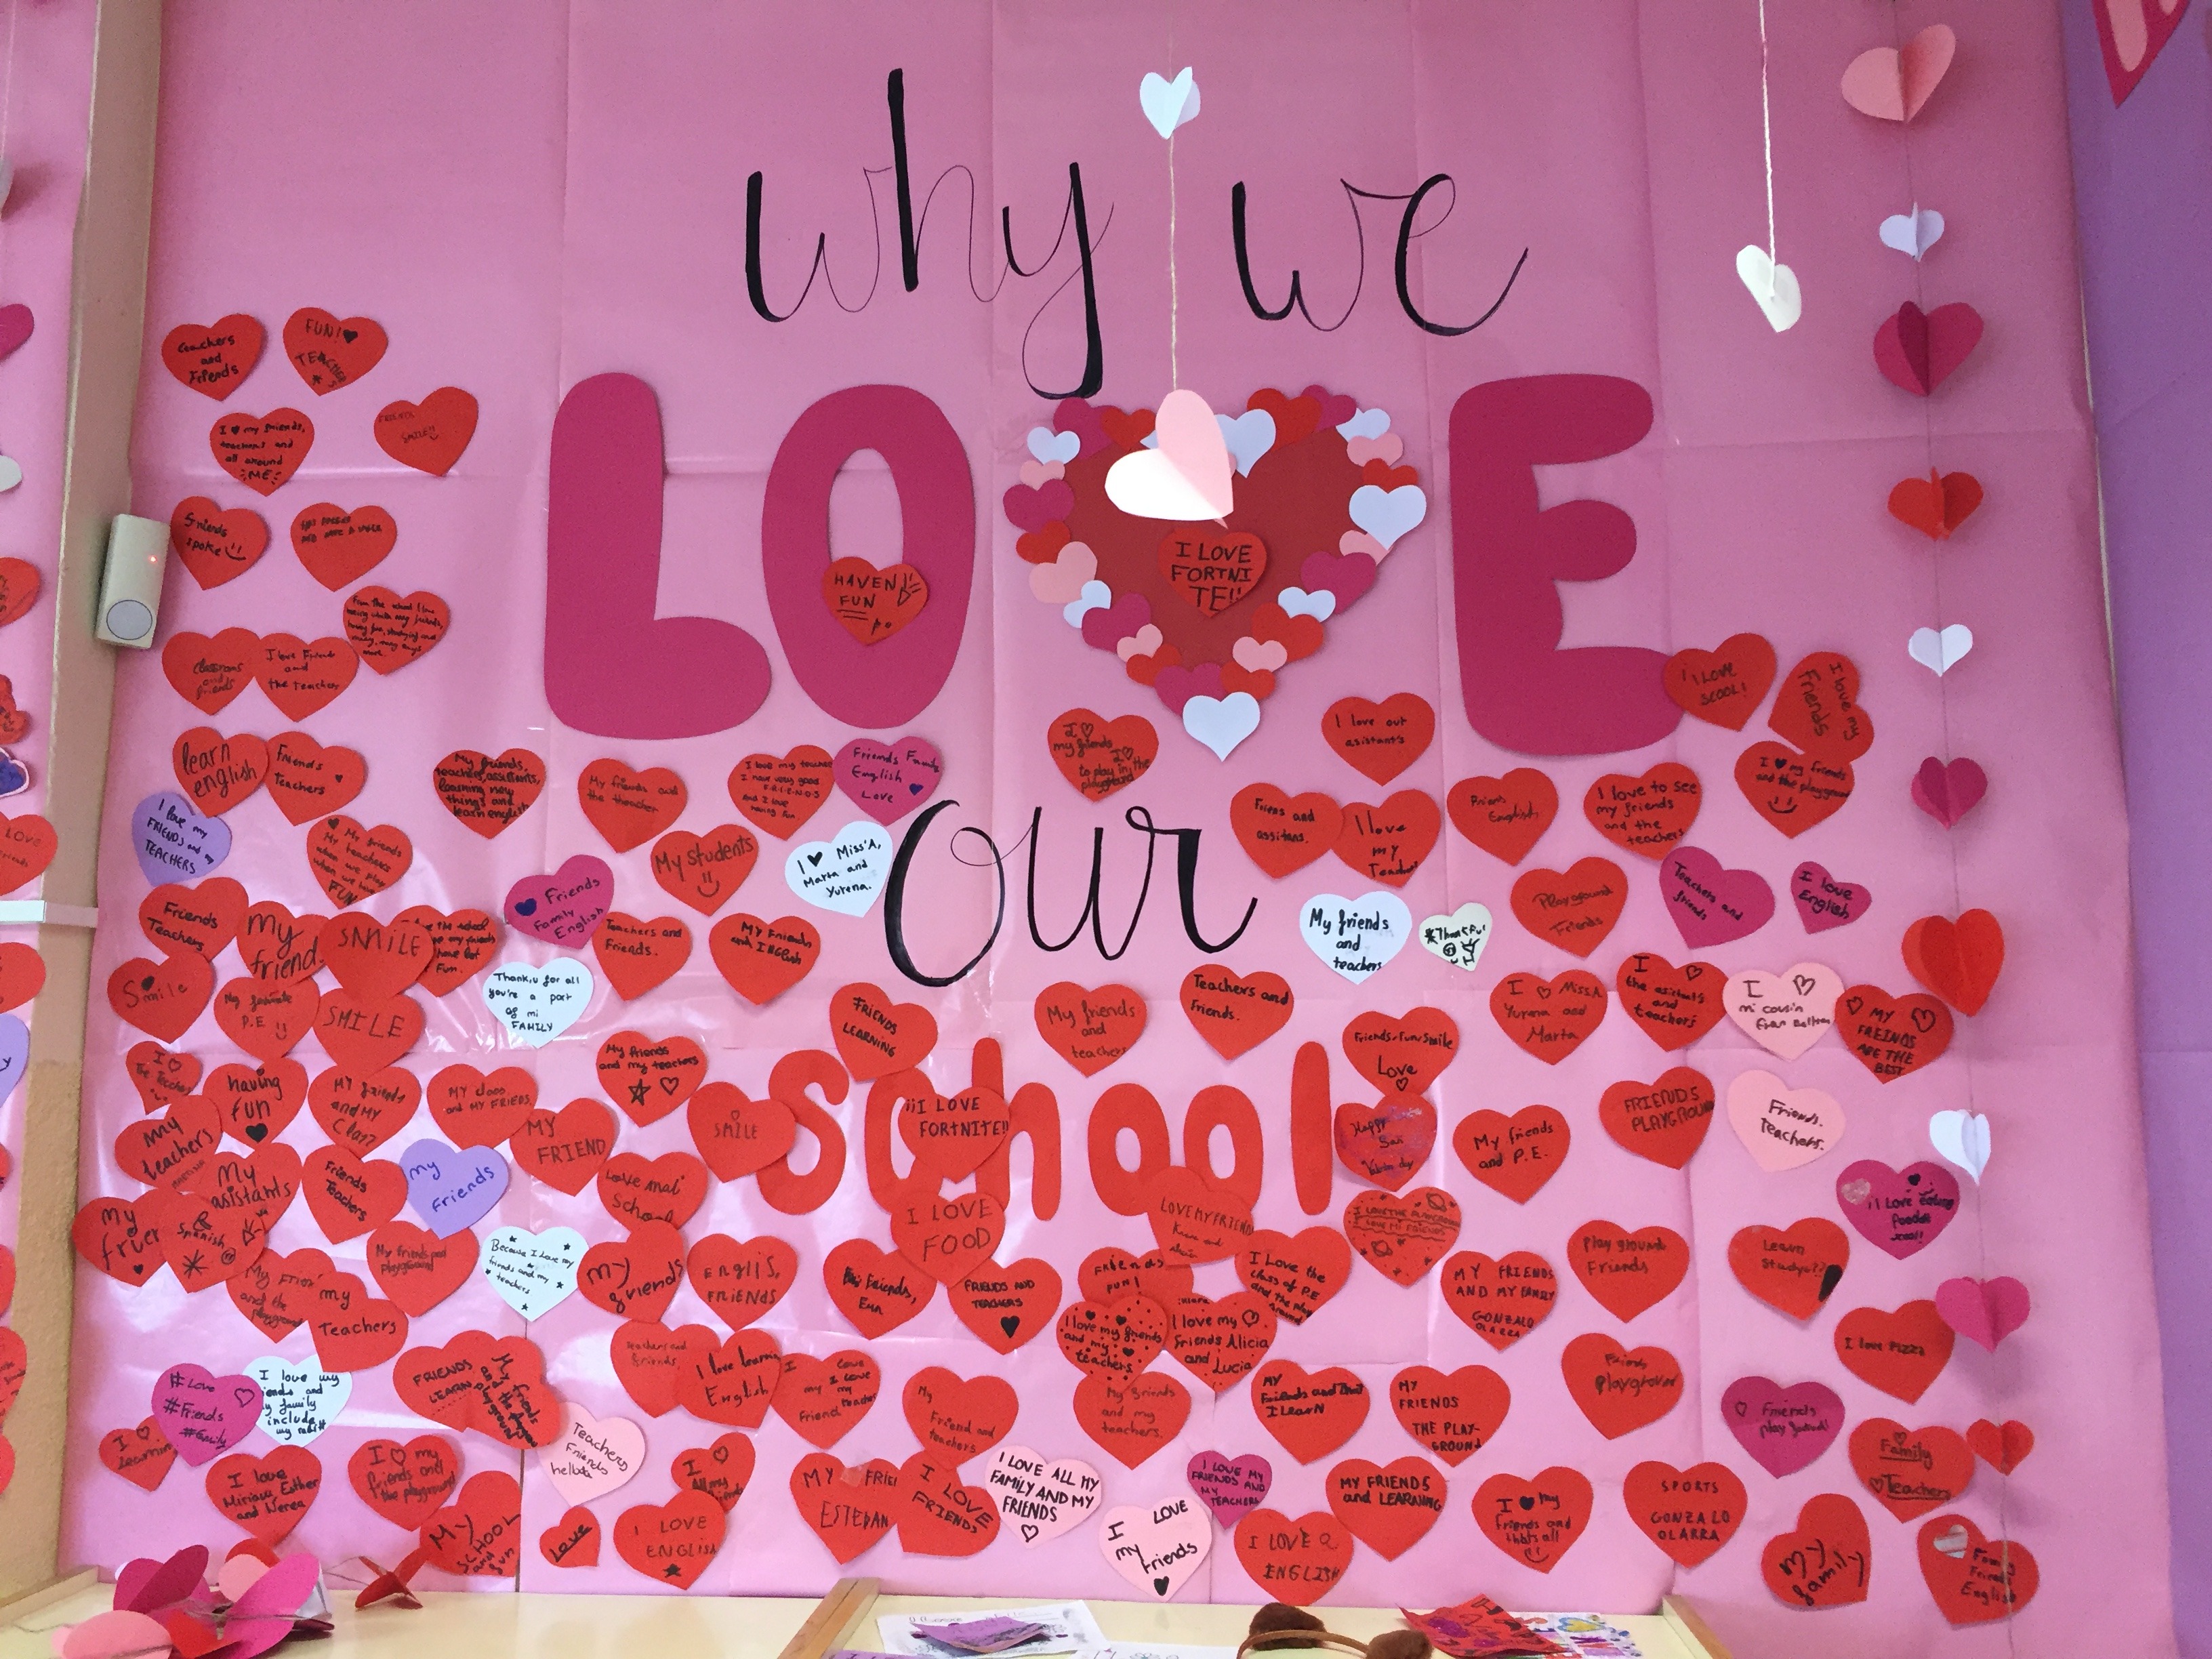 why we
LO E
our
school
teachers
and
Friends
FUN!
TEACHERS
I ♥ my friends,
teachers and
all around
ME
FRIENDS
SMILE!!
friends
HAVEN
FUN
I LOVE
FORTNI
TE!!
classrooms
and
friends
I love Friends
and
the teachers
I LOVE
SCOOL!
I love my
Friends
I ♡
my friends
I ♡
to play in the
playground
I love out
asistant's
learn
english
Friends
Teachers
My friends,
teachers, assistants,
learning new
things and
learn english
My friends and
the theacher
I love my teacher
I have very good
F.R.I.E.N.D.S
and I love
having fun
Friends Family
English
Love
I ♥ my friends
and the playground
I love my
FRIENDS and my
TEACHERS
My friends
My teachers
when we play
when we have
FUN
My students
I ♥ Miss A,
Marta and
Yurena.
Friens and
assitans.
I love
my
Teacher
Friens
English
I love to see
my friends
and the
teachers
Friends
Family
English
Playground
Friends
Teachers and
friends
I love
English
Friends
Teachers
My
friend
SMILE
Fun.
Teachers and
Friends.
MY Friends
and English
My friends
and
teachers
Thankful
Smile
My favorite
P.E
SMILE
Thank u for all
you're a part
of mi
FAMILY
FRIENDS
LEARNING
My friends
and
teachers
Teachers and
friends.
I ♡ Miss A
Yurena and
Marta
I ♡
the asistants
and
teachers
I ♡
mi cousin
Fran Beltran
MY
FREINDS
ARE THE
BEST
Friends-Fun-Smile
Love
I ♡
The Teacher
having
fun
MY friends
and MY
Class
MY class
and MY FRIENDS
My friends
and my teachers
SMILE
¡¡I LOVE
FORTNITE!!
Happy
San
Valentin day
My friends
and P.E.
FRIENDS
PLAYGROUND
Friends.
Teachers.
My
teachers
MY
FRIEND
My
asistants
Friends
Teachers
My
friends
School
I LOVE
FOOD
LOVE MY FRIENDS
I LOVE THE PLAYGROUND
I LOVE MI FRIENDS
My
frien
&
Spanish
My friends and
playground
Because I love my
friends and my
teachers
My
friends
EngliS,
FRiENDS
Friends,
Fun
FRIENDS AND
TEACHERS
Friends
FUN!
I Love the
class of P.E
and the play
ground
MY FRIENDS
AND MY FAMILY
GONZALO
OLARRA
Play ground
Friends
Learn
Study
My Frien
and the
playground
my
Teachers
I love my friends
and my
teachers
I love my
friends Alicia
and Lucia
I love Pizza
FRIENDS
LEARN
My friends
and the
playground
Teachers and
friends.
I love learning
English
I love
my
friend
I love
my
teacher
#Love
#Friends
#Family
I love my
friends and
my family
include
my rabit
My
Friend and
teachers
My friends
and my
teachers.
MY
Friends and that
I LearN
MY
FRIENDS
THE PLAY-
GROUND
Friends
playground
Friends
play ground
I ♡
learning
Teachers
Friends
I love
Miriam Esther
and Nerea
I ♡ my
friends and
the playground
I ♡
All my
friends
MY FRIEND
ESTEBAN
I LOVE
FRIENDS
I LOVE ALL MY
FAMILY AND MY
FRIENDS
I LOVE MY
FRIENDS AND
MY
TEACHERS
MY FRIENDS
and LEARNING
I ♥ my
Friends and
thats all
SPORTS
GONZALO
OLARRA
Family
Teachers
MY
SCHOOL
and fun
Love
I LOVE
ENGLISH
I LOVE
my
friends
I LOVE
ENGLISH
My
family
Family
Friends
English